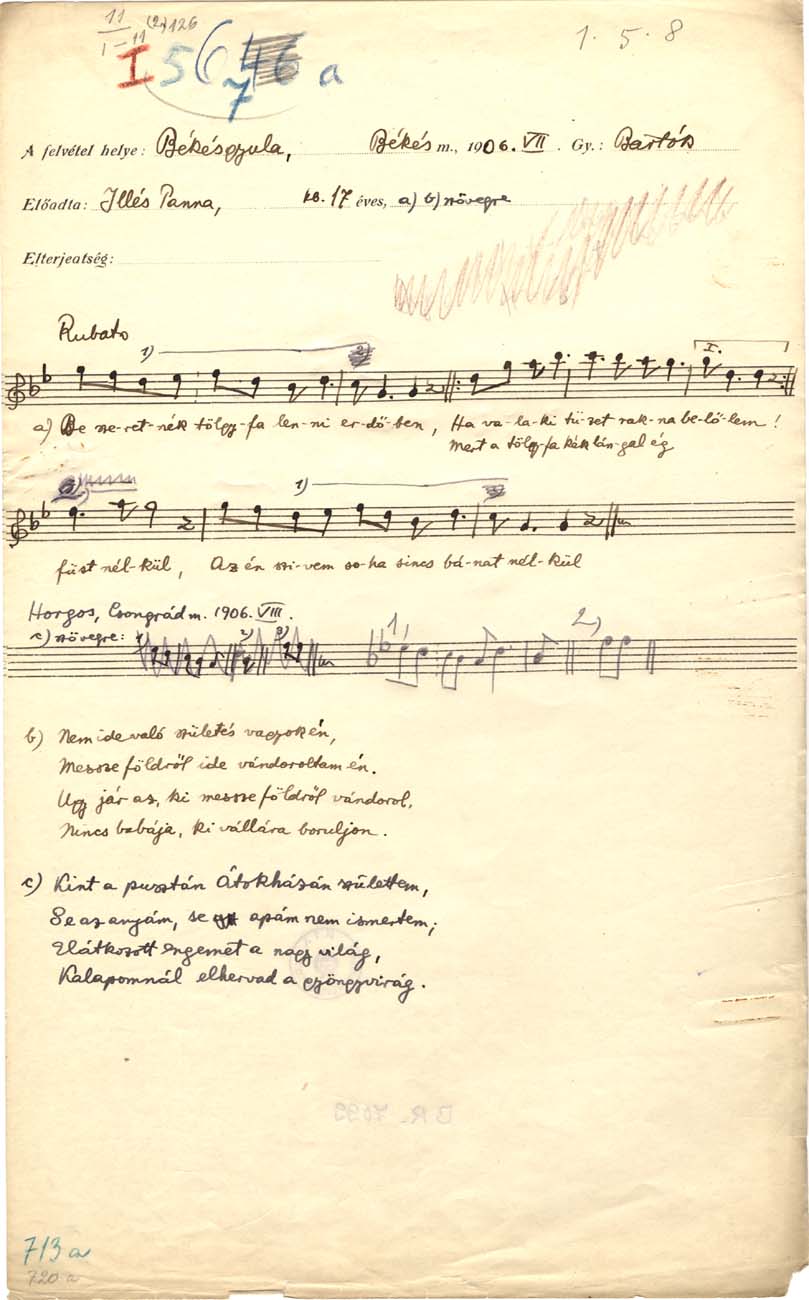 11
1-11 (2) 126
1. 5. 8
I 5 6 7 a
A felvétel helye: Békésgyula, Békés m., 1906. VII. Gy.: Bartók
Előadta: Illés Panna, kb. 17 éves, a) b) szövegre
Elterjedtség:
Rubato
1)
I.
a) De sze-ret-nék tölgy-fa len-ni er-dő-ben, Ha va-la-ki tü-zet rak-na be-lő-lem!
Mert a tölgy-fa kék láng-gal ég
1)
füst nél-kül, Az én szi-vem so-ha sincs bá-nat nél-kül
Horgos, Csongrád m. 1906. VIII.
c) szövegre: 1) 2) 3) 1) 2)
b) Nem ide való születés vagyok én,
Messze földről ide vándoroltam én.
Ugy jár az, ki messze földről vándorol,
Nincs babája, ki vállára boruljon.
c) Kint a pusztán Átokházán születtem,
Se az anyám, se apám nem ismertem;
Elátkozott engemet a nagy világ,
Kalapomnál elhervad a gyöngyvirág.
713 a
720 a